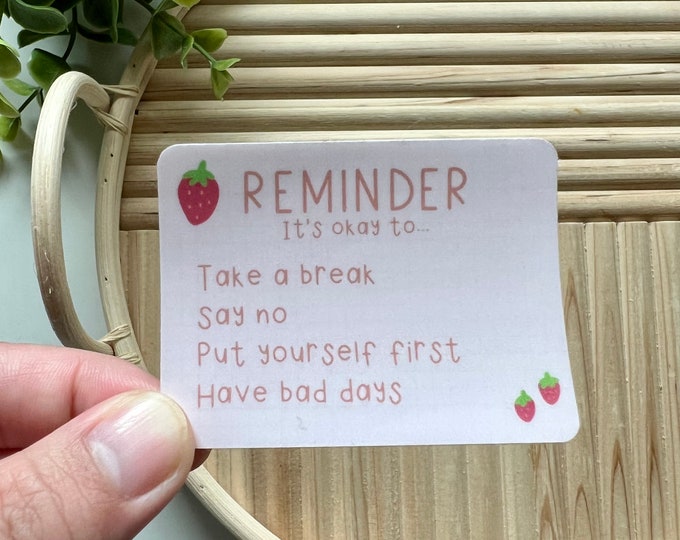 REMINDER
It's okay to...
Take a break
Say no
Put yourself first
Have bad days